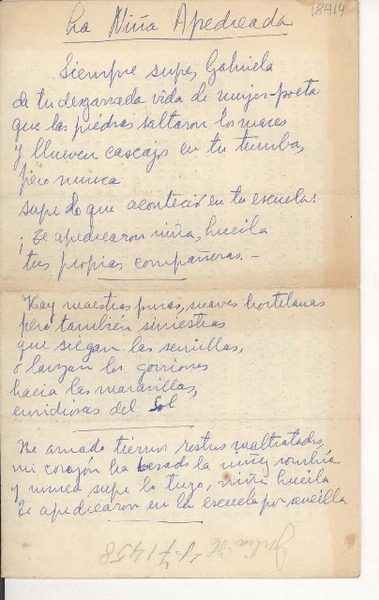 18414
La Niña Apedreada
Siempre supe, Gabriela
de tu desgarrada vida de mujer-poeta
que las piedras saltaron los mares
y llueven cascajos en tu tumba,
pero nunca
supe lo que aconteció en tu escuela:
¡Te apedrearon niña, Lucila
tus propias compañeras.—
Hay maestras puras, suaves hortelanas
pero también siniestras
que siegan las semillas,
o lanzan los gorriones
hacia las maravillas,
envidiosas del Sol
He amado tiernos restos maltratados,
mi corazón ha besado la niñez sombría
y nunca supe lo tuyo, niña Lucila
Te apedrearon en la escuela por sencilla
Julia